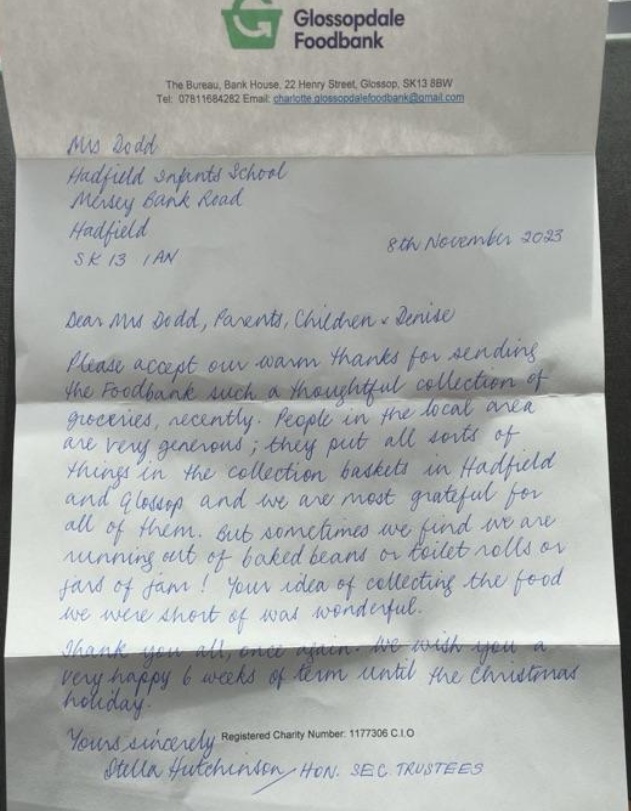 Glossopdale
Foodbank
The Bureau, Bank House, 22 Henry Street, Glossop, SK13 8BW
Tel: 07811684282 Email: charlotte.glossopdalefoodbank@gmail.com
Mrs Dodd
Hadfield Infants School
Mersey Bank Road
Hadfield
SK13 1AN
8th November 2023
Dear Mrs Dodd, Parents, Children & Denise
Please accept our warm thanks for sending
the Foodbank such a thoughtful collection of
groceries, recently. People in the local area
are very generous; they put all sorts of
things in the collection baskets in Hadfield
and Glossop and we are most grateful for
all of them. But sometimes we find we are
running out of baked beans or toilet rolls or
jars of jam! Your idea of collecting the food
we were short of was wonderful.
Thank you all, once again. We wish you a
very happy 6 weeks of term until the Christmas
holiday.
Yours sincerely
Registered Charity Number: 1177306 C.I.O
Stella Hutchinson, HON. SEC. TRUSTEES